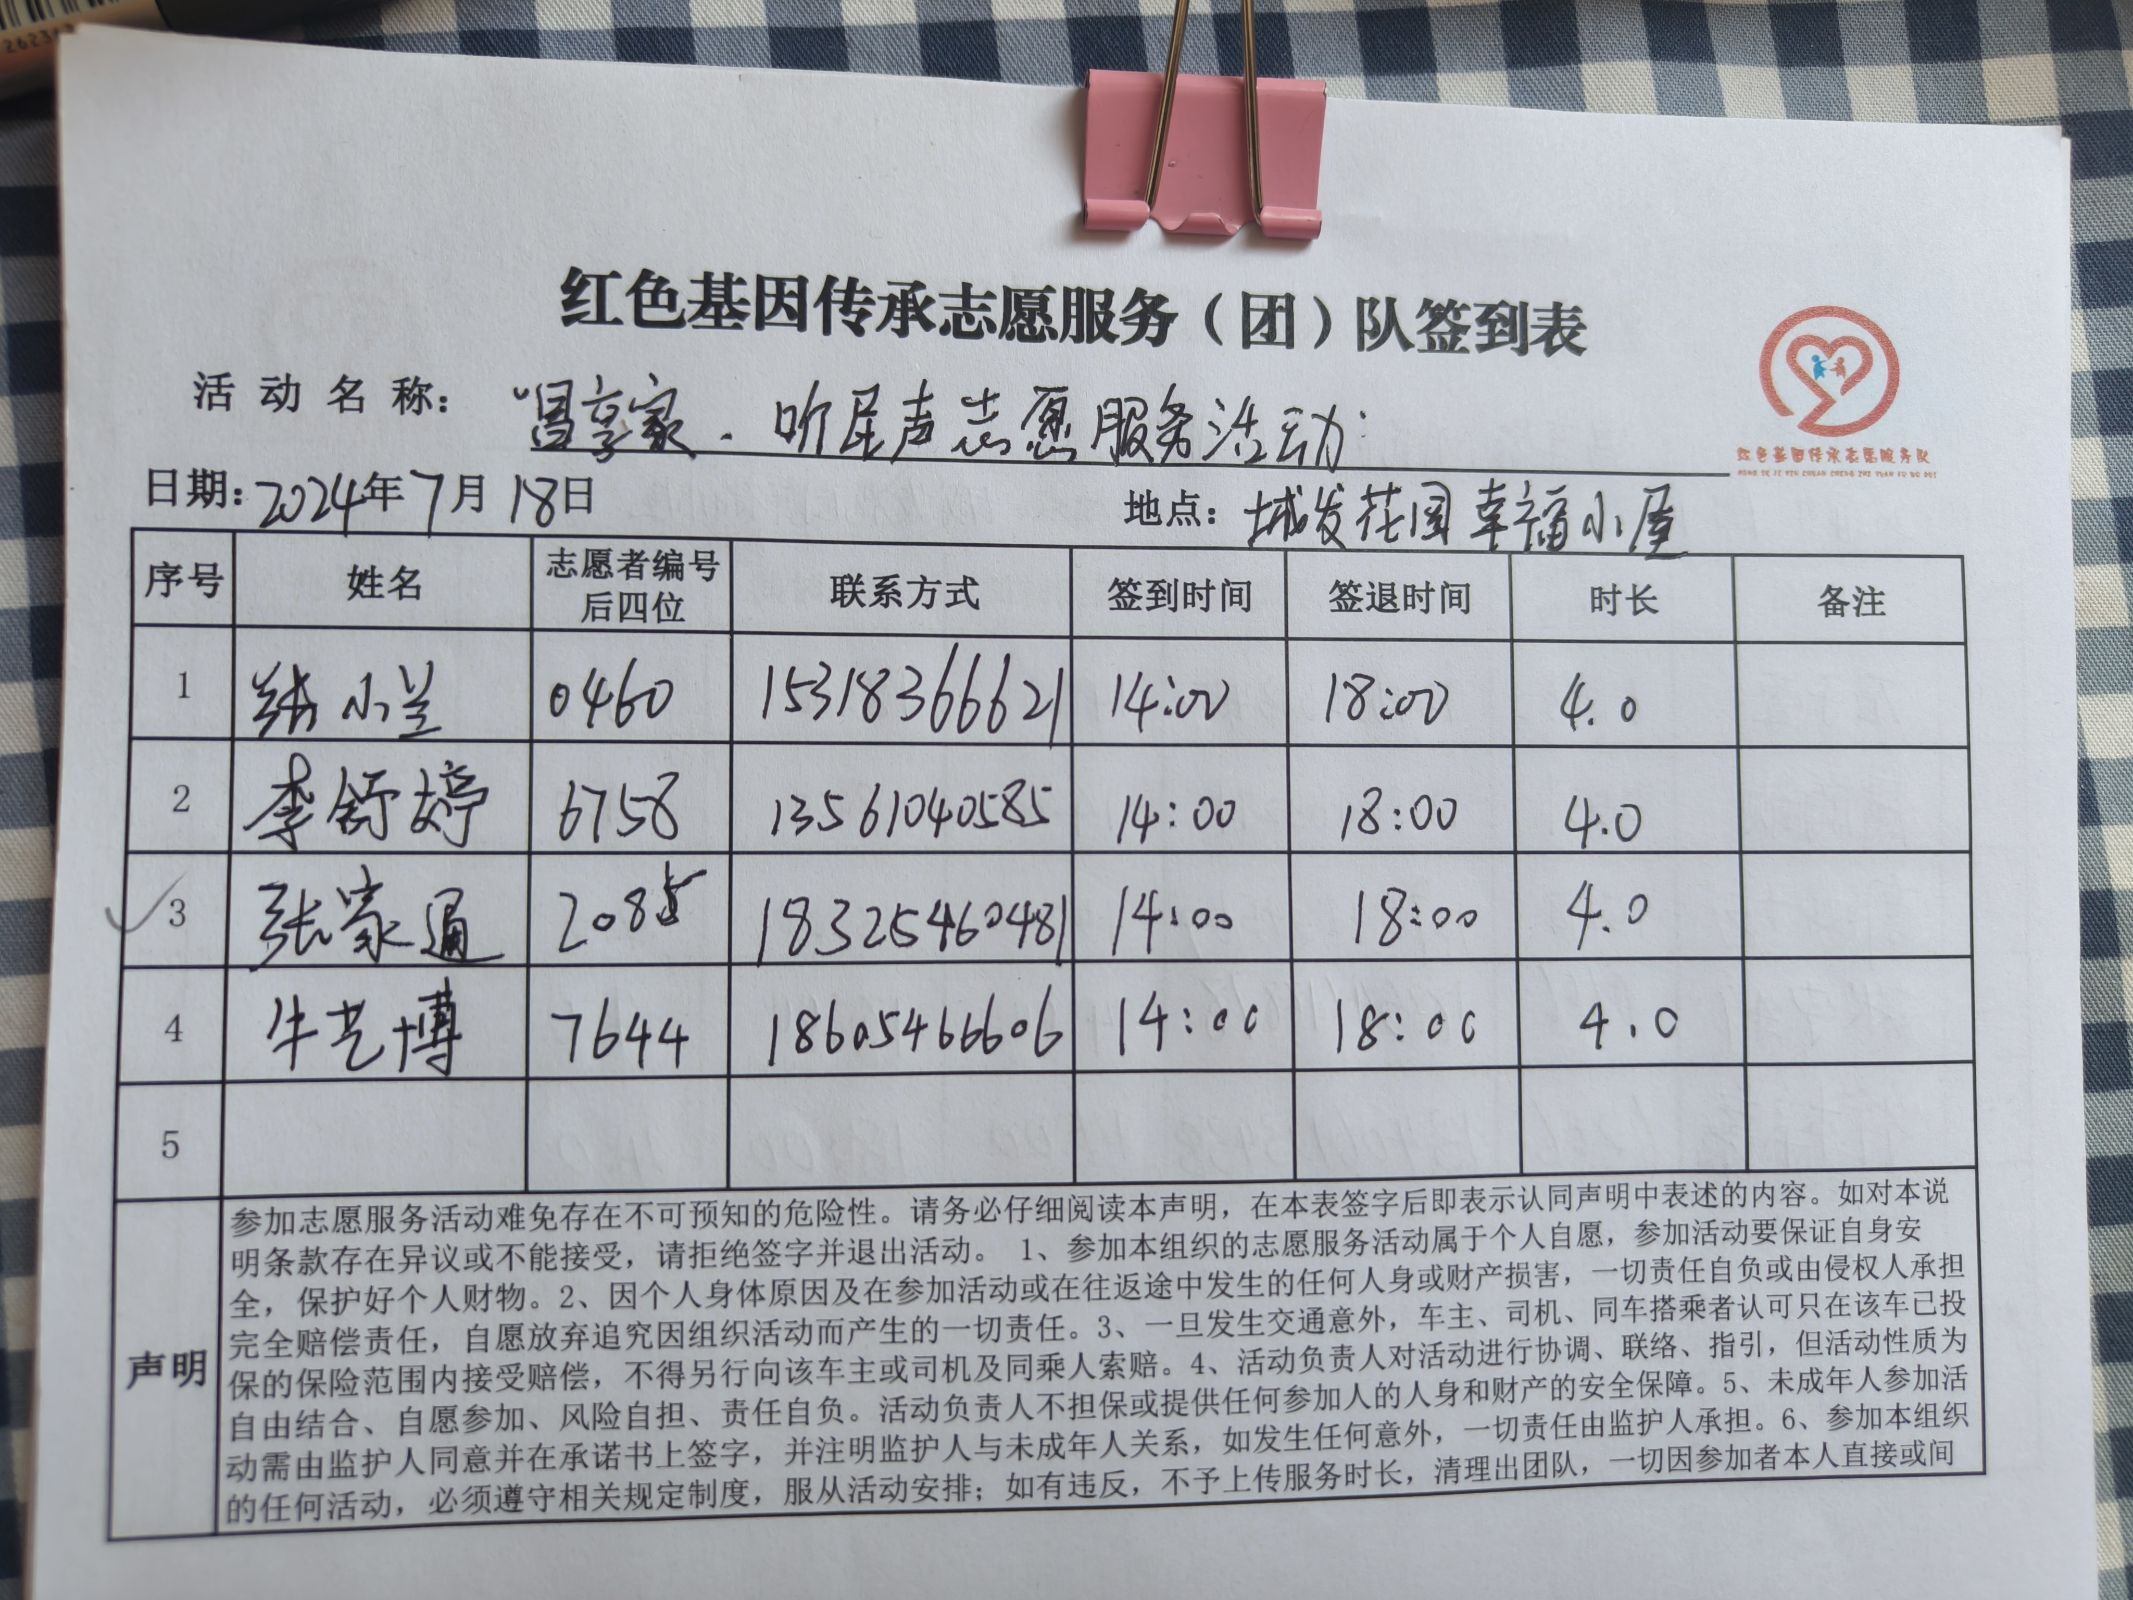 红色基因传承志愿服务（团）队签到表
活动名称：“冒享家.听民声志愿服务活动
红色基因传承志愿服务队
HONG SE JI YIN CHUAN CHENG ZHI YUAN FU WU DUI
日期：2024年7月18日 地点：城发花园幸福小屋
序号 姓名 志愿者编号后四位 联系方式 签到时间 签退时间 时长 备注
1 小兰 0460 15318366621 14:00 18:00 4.0
2 李舒婷 6758 13561040585 14:00 18:00 4.0
3 张家通 2085 18325460481 14:00 18:00 4.0
4 牛艺博 7644 18605466606 14:00 18:00 4.0
5
声明
参加志愿服务活动难免存在不可预知的危险性。请务必仔细阅读本声明，在本表签字后即表示认同声明中表述的内容。如对本说
明条款存在异议或不能接受，请拒绝签字并退出活动。 1、参加本组织的志愿服务活动属于个人自愿，参加活动要保证自身安
全，保护好个人财物。2、因个人身体原因及在参加活动或在往返途中发生的任何人身或财产损害，一切责任自负或由侵权人承担
完全赔偿责任，自愿放弃追究因组织活动而产生的一切责任。3、一旦发生交通意外，车主、司机、同车搭乘者认可只在该车已投
保的保险范围内接受赔偿，不得另行向该车主或司机及同乘人索赔。4、活动负责人对活动进行协调、联络、指引，但活动性质为
自由结合、自愿参加、风险自担、责任自负。活动负责人不担保或提供任何参加人的人身和财产的安全保障。5、未成年人参加活
动需由监护人同意并在承诺书上签字，并注明监护人与未成年人关系，如发生任何意外，一切责任由监护人承担。6、参加本组织
的任何活动，必须遵守相关规定制度，服从活动安排；如有违反，不予上传服务时长，清理出团队，一切因参加者本人直接或间